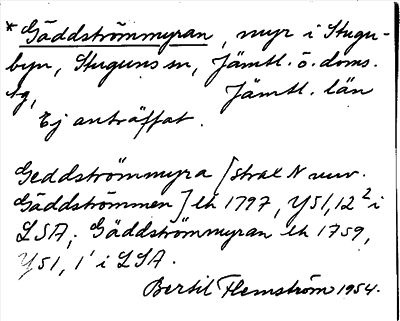 * Gäddströmmyran, myr i Stugu-
byn, Stuguns sn, Jämtl. ö. doms.
tg, Jämtl. län
Ej anträffat.
Geddströmmyra [strax N nuv.
Gäddströmmen] lh 1797, Y51,12² i
LSA; Gäddströmmyran lh 1759,
Y51, 1' i LSA.
Bertil Flemström 1954.